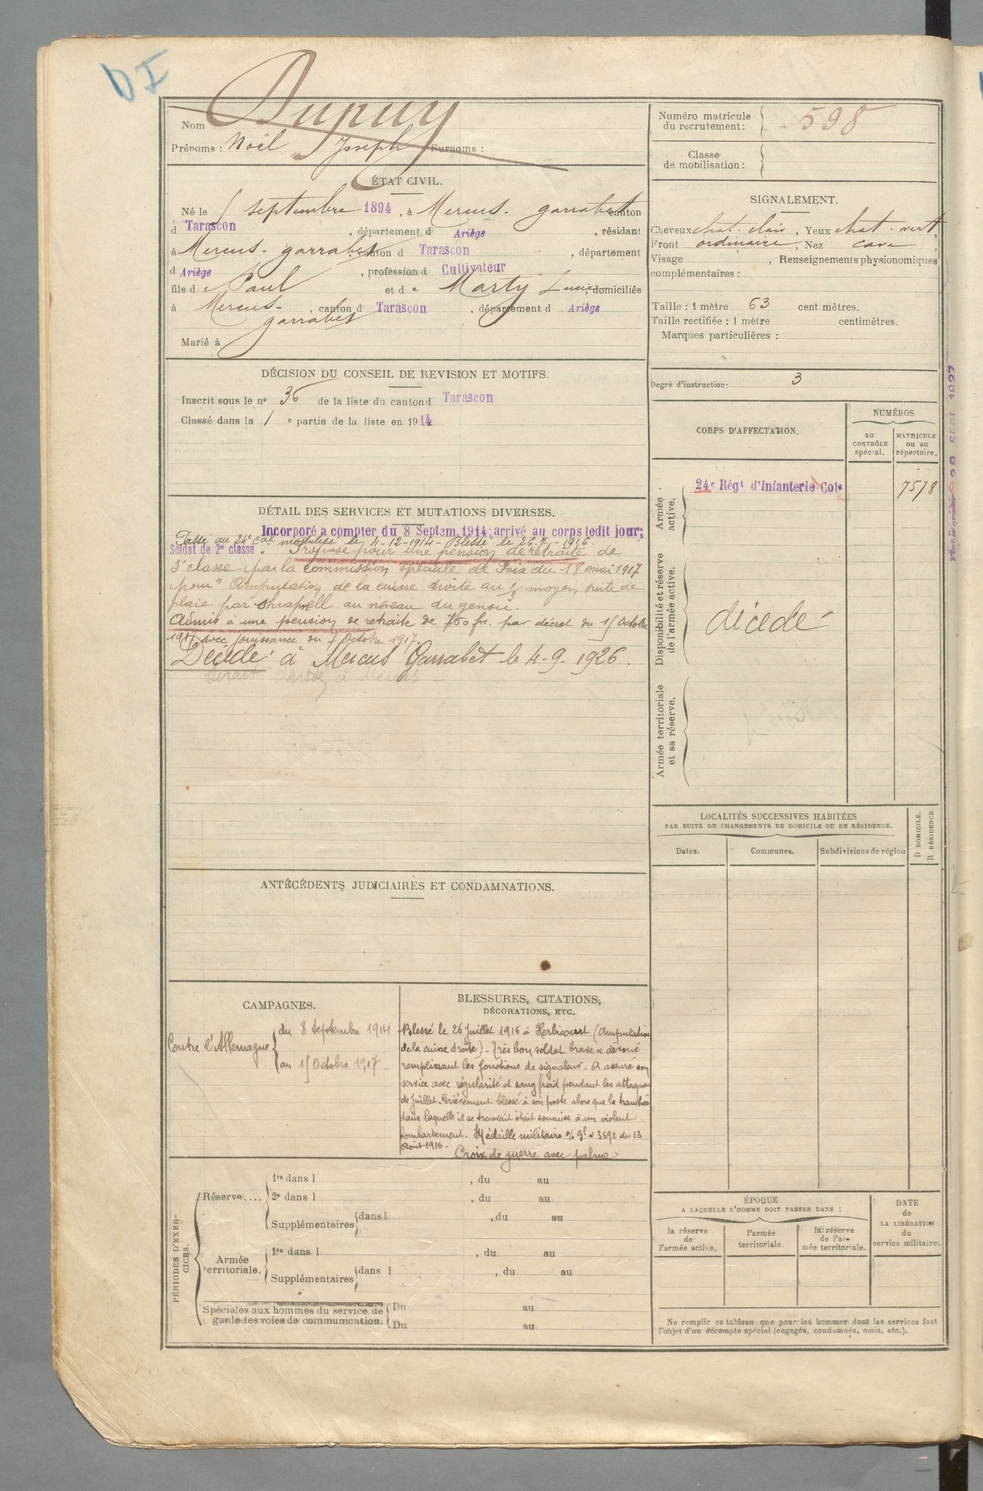 DI
Nom Dupuy
Prénoms : Noël Joseph Surnoms :
Numéro matricule du recrutement : 598
Classe de mobilisation :
ÉTAT CIVIL.
Né le 5 septembre 1894, à Mercus-garrabet canton
d Tarascon, département d Ariège, résidant
à Mercus-garrabet, canton d Tarascon, département
d Ariège, profession d Cultivateur
fils de Paul et de Marty Lucie domiciliés
à Mercus-garrabet, canton d Tarascon, département d Ariège
Marié à
SIGNALEMENT.
Cheveux chat. clair, Yeux chat. vert
Front ordinaire, Nez cave
Visage , Renseignements physionomiques
complémentaires :
Taille : 1 mètre 63 centimètres.
Taille rectifiée : 1 mètre centimètres.
Marques particulières :
Degré d'instruction : 3
DÉCISION DU CONSEIL DE REVISION ET MOTIFS.
Inscrit sous le n° 36 de la liste du canton d Tarascon
Classé dans la 1 e partie de la liste en 1914
DÉTAIL DES SERVICES ET MUTATIONS DIVERSES.
Incorporé a compter du 8 Septem. 1914, arrivé au corps ledit jour;
Passé au 24e Cal mobilisé le 4-12-1914 - Blessé le 26.7.1916
Soldat de 2e classe. Proposé pour une pension de retraite de
5e classe par la Commission spéciale de Foix du 18 mai 1917
pour "amputation de la cuisse droite au 1/3 moyen suite de
plaie par shrapnell au niveau du genou.
Admis à une pension de retraite de 750 fr. par décret du 15 Octobre
1917 avec jouissance du Octobre 1917.
Décédé à Mercus Garrabet le 4-9-1926.
CORPS D'AFFECTATION.
NUMÉROS
au CONTRÔLE spécial.
MATRICULE ou au répertoire.
Armée active.
24e Régt d'Infanterie Cole
7578
Disponibilité et réserve de l'armée active.
décédé
Armée territoriale et sa réserve.
LOCALITÉS SUCCESSIVES HABITÉES
PAR SUITE DE CHANGEMENTS DE DOMICILE OU DE RÉSIDENCE.
Dates.
Communes.
Subdivisions de région
D DOMICILE.
R RÉSIDENCE.
ANTÉCÉDENTS JUDICIAIRES ET CONDAMNATIONS.
CAMPAGNES.
Contre l'Allemagne
du 8 Septembre 1914
au 15 Octobre 1917
BLESSURES, CITATIONS,
DÉCORATIONS, ETC.
Blessé le 26 Juillet 1916 à Herbécourt (Amputation
de la cuisse droite) - Très bon soldat brave & dévoué
remplissant les fonctions de signaleur. A assuré son
service avec régularité et sang froid pendant les attaques
de Juillet. Grièvement blessé à son poste alors que la tranchée
dans laquelle il se trouvait était soumise à un violent
bombardement. Médaille militaire 3692 du 13
Août 1916.
Croix de guerre avec palme
PÉRIODES D'EXERCICES.
Réserve....
1re dans l , du au
2e dans l , du au
Supplémentaires dans l , du au
Armée territoriale.
1re dans l , du au
Supplémentaires dans l , du au
Spéciales aux hommes du service de garde des voies de communication.
Du au
Du au
ÉPOQUE
A LAQUELLE L'HOMME DOIT PASSER DANS :
la réserve de l'armée active.
l'armée territoriale.
la réserve de l'armée territoriale.
DATE
de
LA LIBÉRATION
du
service militaire.
Ne remplir ce tableau que pour les hommes dont les services font
l'objet d'un décompte spécial (engagés, condamnés, omis, etc.).